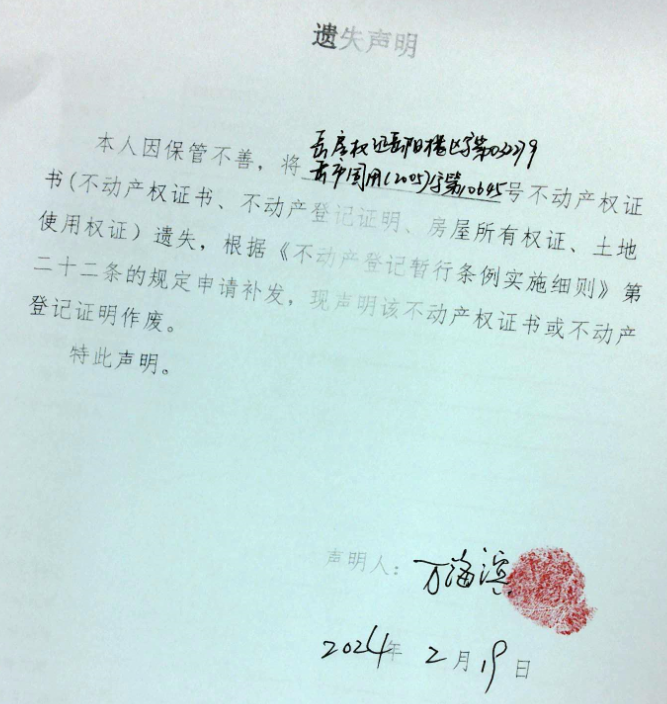 遗失声明
岳房权证岳阳楼区字第
本人因保管不善，将岳市国用(2005)字第10645号不动产权证
书(不动产权证书、不动产登记证明、房屋所有权证、土地
使用权证）遗失，根据《不动产登记暂行条例实施细则》第
二十二条的规定申请补发，现声明该不动产权证书或不动产
登记证明作废。
特此声明。
声明人：万海滨
2024年2月19日